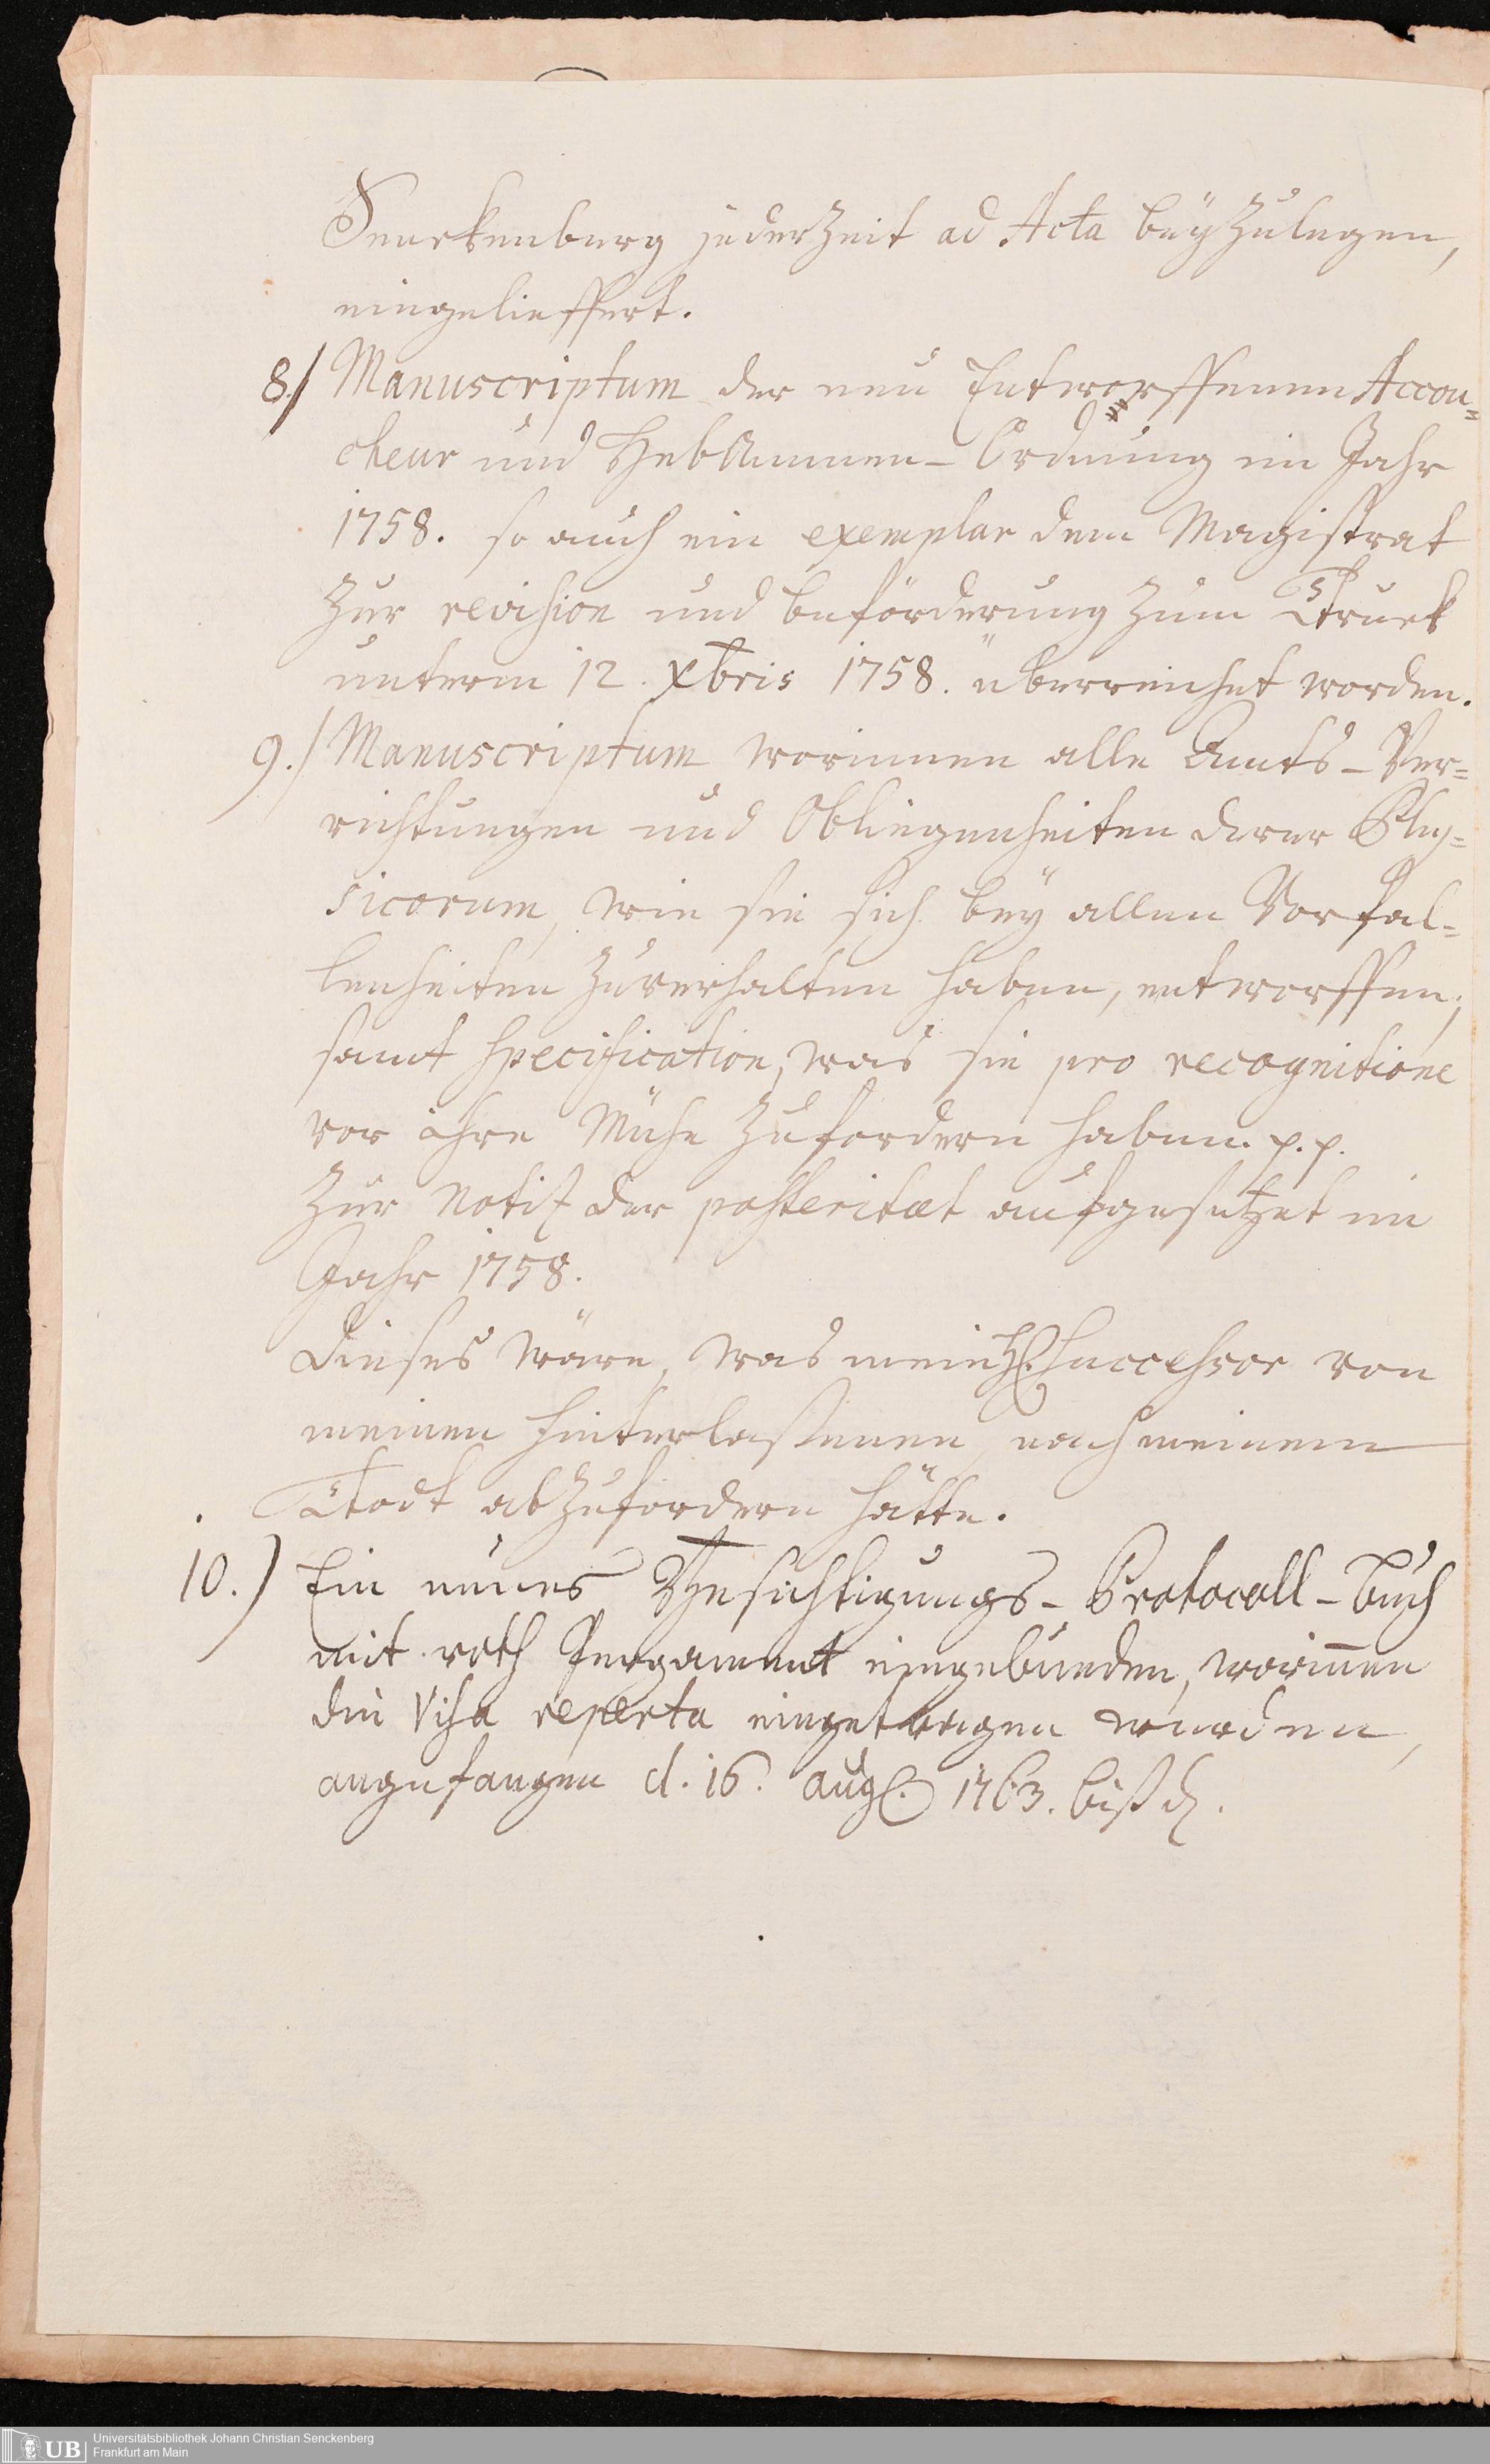 Senckenburg jederZeit ad Acta beÿZulegen,
eingelieffert.
8./ Manuscriptum der neu Entworffenen Accou=
cheur und HebAmmen-Ordnung im Jahr
1758. so auch ein exemplar dem Magistrat
Zur revision und beförderung Zum Truck
unterm 12. Xbris 1758. überreichet worden.
9./ Manuscriptum worinnen alle Amts-Ver=
richtungen und Obliegenheiten derer Phy=
sicorum, wie sie sich beÿ allen Vorfal=
lenheiten Zuverhalten haben, entworffen;
samt Specification, was sie pro recognitione
vor ihre Mühe Zufordern haben. p. p.
Zur Notiz der posteritæt aufgesetzet im
Jahr 1758.
Dieses wäre, was mein H. Successor von
meinen hinterlaßenen, nach meinem
Todt abZufordern hätte.
10.) Ein neues Besichtigungs-Protocoll-Buch
mit roth Pergament eingebunden, worinnen
die Visa reperta eingetragen wurden,
angefangen d. 16. aug. 1763. biß d.
UB Universitätsbibliothek Johann Christian Senckenberg
Frankfurt am Main